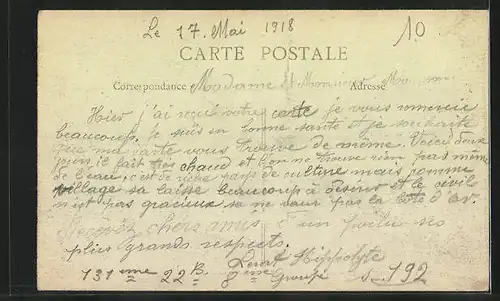 Le 17. Mai 1918
10
CARTE POSTALE
Correspondance Adresse
Madame et Monsieur
Hier j'ai reçu votre carte je vous remercie
beaucoup. Je suis en bonne santé et je souhaite
que ma carte vous trouve de même. Voici deux
jours il fait très chaud et on ne trouve rien pas même
de l'eau, c'est de votre pays de culture mais comme
village sa laisse beaucoup à désirer et le civils
n'est pas gracieux sa ne vaut pas la côte d'or.
Recevez chers amis d'un poilu ses
plus grands respects.
Hippolyte
131ème 22 B. 8ème Groupe
192